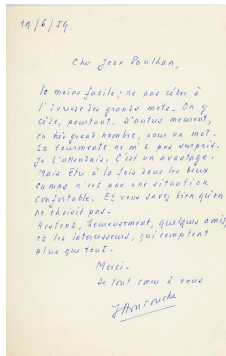 19/6/59.
Cher Jean Paulhan,
Le moins facile : ne pas céder à
l'ivresse des grands mots. On y
cède, pourtant. D'autres meurent,
en très grand nombre, pour un mot.
La tourmente ne m'a pas surpris.
Je l'attendais. C'est un avantage.
Mais être à la fois dans les deux
camps n'est pas une situation
confortable. Et vous savez bien qu'on
ne choisit pas.
Restent, heureusement, quelques amis,
et les intercesseurs, qui comptent
plus que tout.
Merci.
De tout cœur à vous